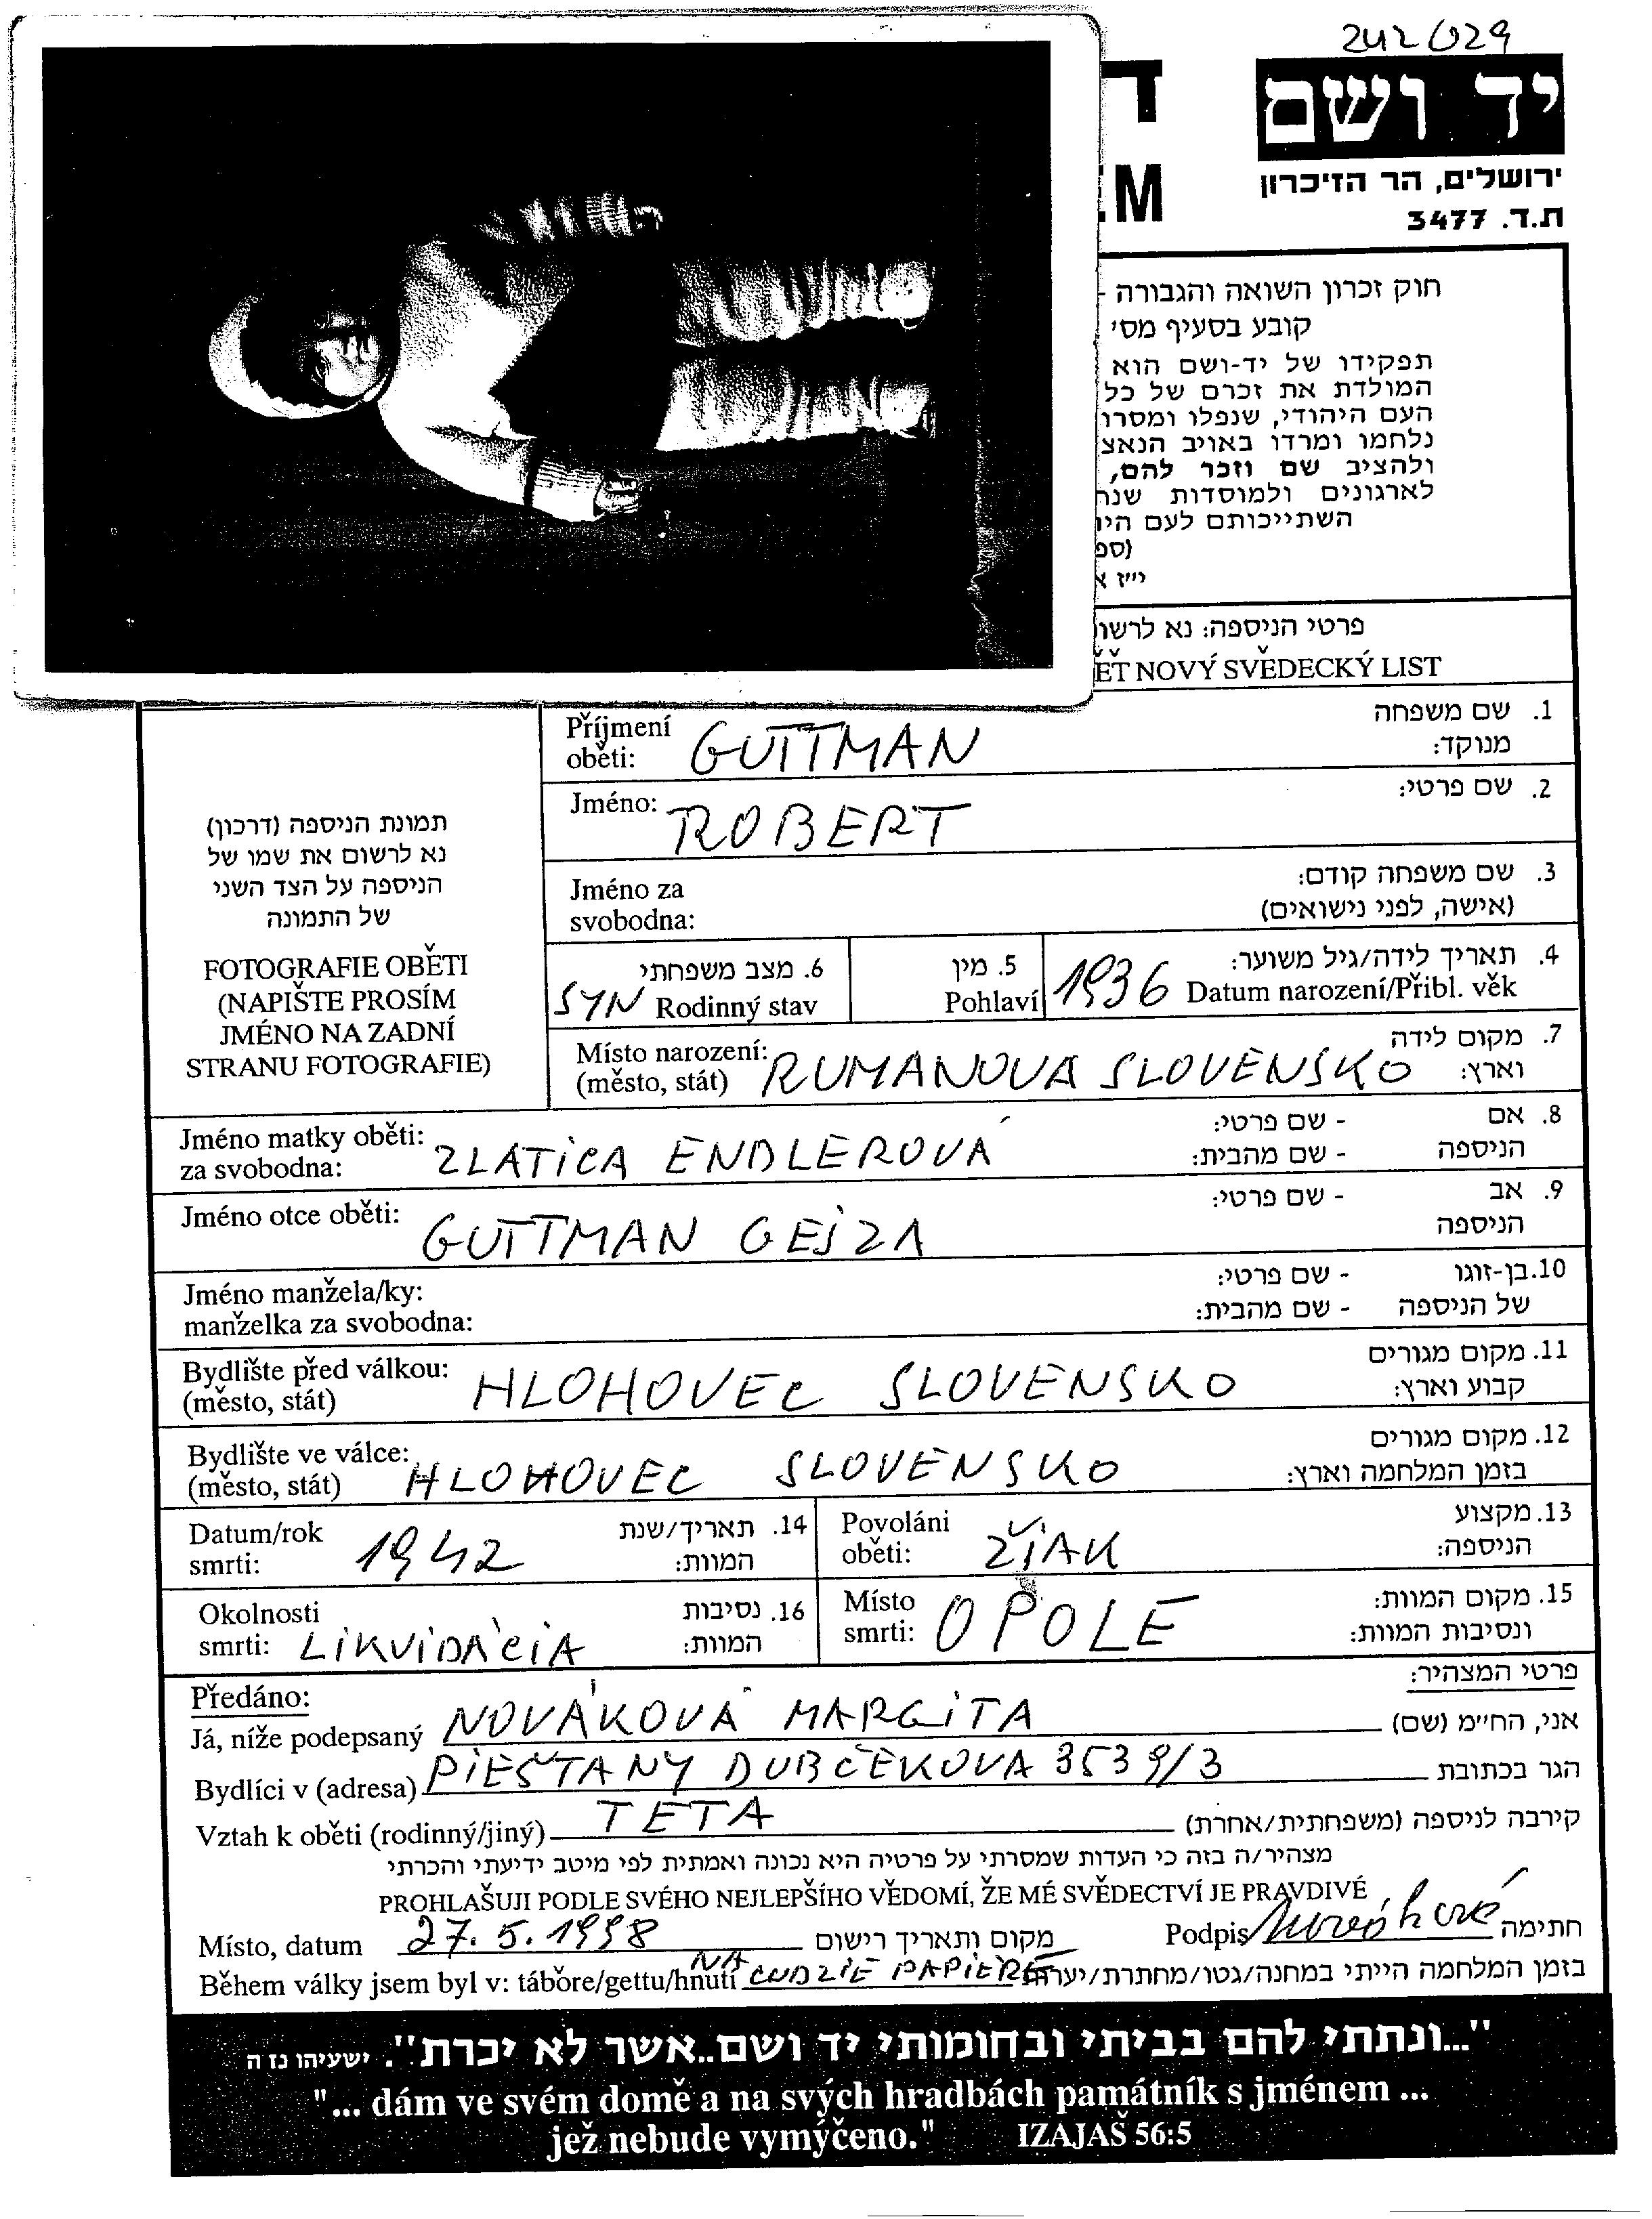 242/029
ד
יד ושם
EM
ירושלים, הר הזיכרון
ת.ד. 3477
חוק זכרון השואה והגבורה -
קובע בסעיף מס'
תפקידו של יד-ושם הוא
המולדת את זכרם של כל
העם היהודי, שנפלו ומסרו
נלחמו ומרדו באויב הנאצ
ולהציב שם וזכר להם,
לארגונים ולמוסדות שנח
השתייכותם לעם היו
(ספ
י"ז א
פרטי הניספה: נא לרשו
ĚT NOVÝ SVĚDECKÝ LIST
תמונת הניספה (דרכון)
נא לרשום את שמו של
הניספה על הצד השני
של התמונה
FOTOGRAFIE OBĚTI
(NAPIŠTE PROSÍM
JMÉNO NA ZADNÍ
STRANU FOTOGRAFIE)
Příjmení
oběti: GUTTMAN
1. שם משפחה
מנוקד:
Jméno: ROBERT
2. שם פרטי:
Jméno za
svobodna:
3. שם משפחה קודם:
(אישה, לפני נישואים)
6. מצב משפחתי
SYN Rodinný stav
5. מין
Pohlaví
4. תאריך לידה/גיל משוער:
1936 Datum narození/Přibl. věk
Místo narození:
(město, stát) RUMANOVA SLOVENSKO
7. מקום לידה
וארץ:
Jméno matky oběti:
za svobodna: ZLATICA ENDLEROVÁ
8. אם - שם פרטי:
הניספה - שם מהבית:
Jméno otce oběti: GUTTMAN GEJZA
9. אב - שם פרטי:
הניספה
Jméno manžela/ky:
manželka za svobodna:
10. בן-זוגו - שם פרטי:
של הניספה - שם מהבית:
Bydlište před válkou:
(město, stát) HLOHOVEC SLOVENSKO
11. מקום מגורים
קבוע וארץ:
Bydlište ve válce:
(město, stát) HLOHOVEC SLOVENSKO
12. מקום מגורים
בזמן המלחמה וארץ:
Datum/rok
smrti: 1942
14. תאריך/שנת
המוות:
Povoláni
oběti: ŽIAK
13. מקצוע
הניספה:
Okolnosti
smrti: LIKVIDÁCIA
16. נסיבות
המוות:
Místo
smrti: OPOLE
15. מקום המוות:
ונסיבות המוות:
Předáno:
פרטי המצהיר:
Já, níže podepsaný NOVÁKOVÁ MARGITA אני, החי"מ (שם)
Bydlíci v (adresa) PIEŠŤANY DUBČEKOVA 3539/3 הגר בכתובת
Vztah k oběti (rodinný/jiný) TETA קירבה לניספה (משפחתית/אחרת)
מצהיר/ה בזה כי העדות שמסרתי על פרטיה היא נכונה ואמתית לפי מיטב ידיעתי והכרתי
PROHLAŠUJI PODLE SVÉHO NEJLEPŠÍHO VĚDOMÍ, ŽE MÉ SVĚDECTVÍ JE PRAVDIVÉ
Místo, datum 27. 5. 1998 מקום ותאריך רישום Podpis Nováková חתימה
Během války jsem byl v: táboře/gettu/hnutí NA CUDZIE PAPIERE בזמן המלחמה הייתי במחנה/גטו/מחתרת/יערות
"...ונתתי להם בביתי ובחומותי יד ושם..אשר לא יכרת". ישעיהו נז ה
"... dám ve svém domě a na svých hradbách památník s jménem ...
jež nebude vymýčeno." IZAJAŠ 56:5